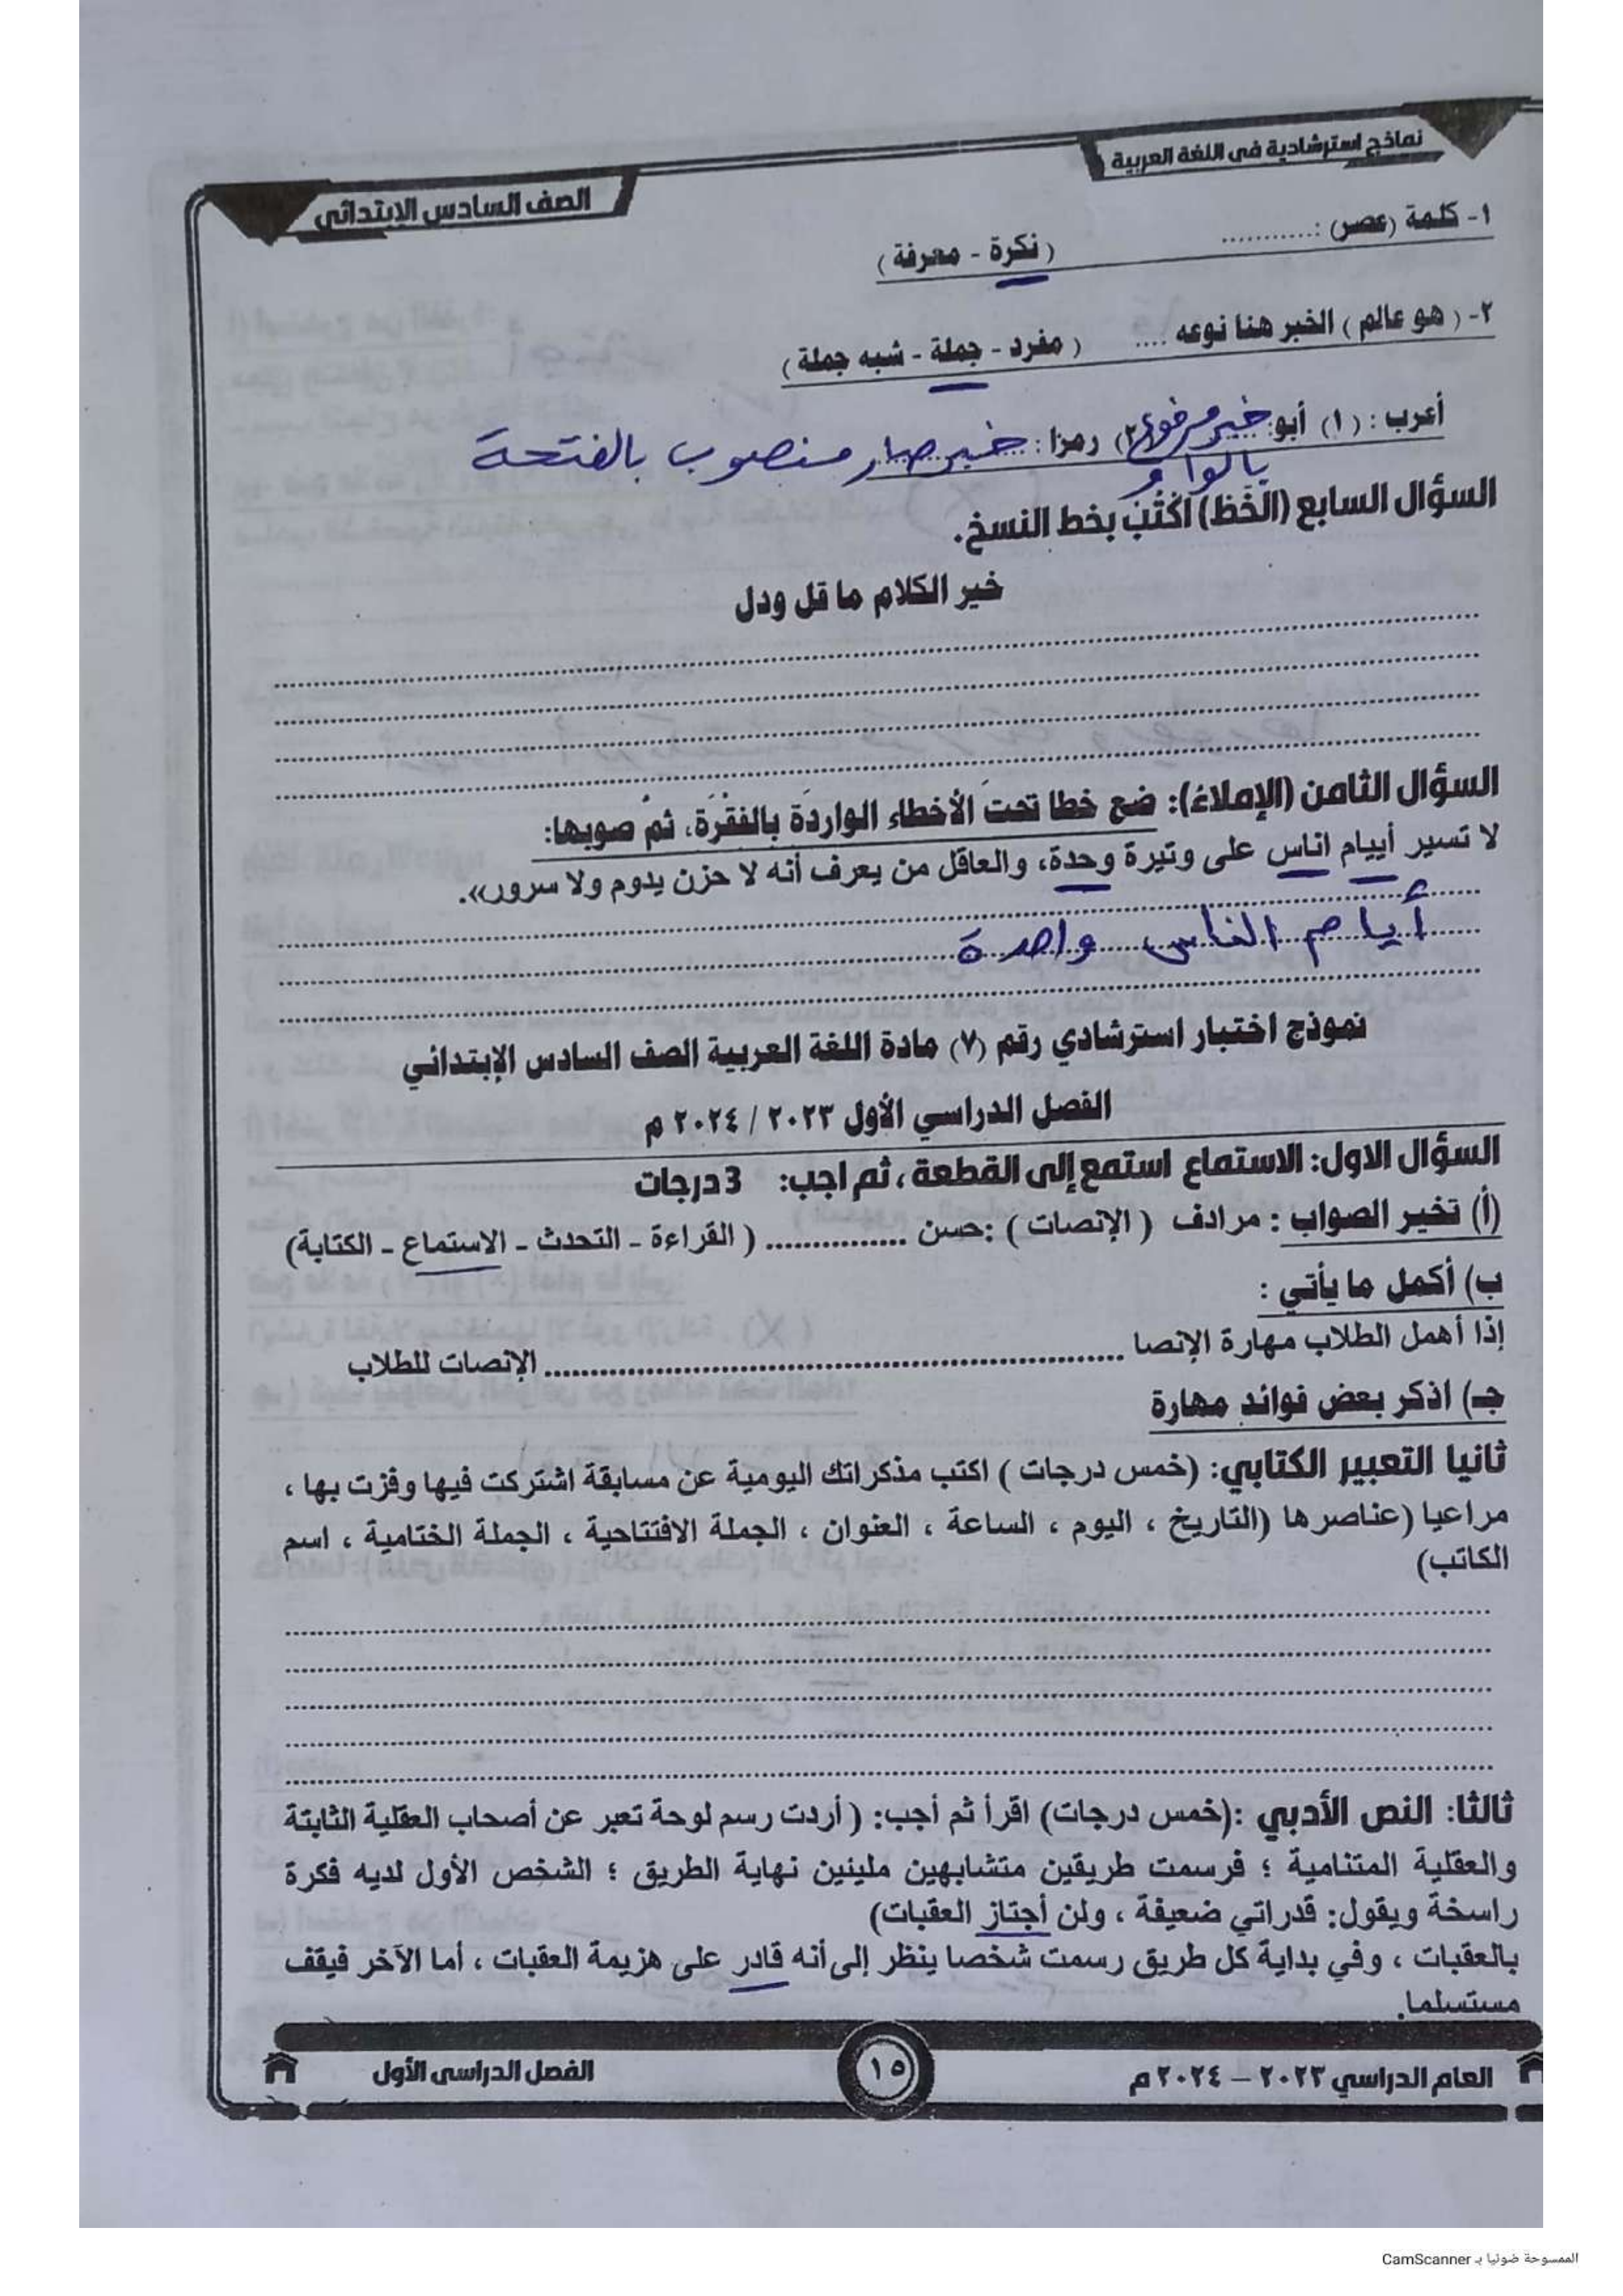 نماذج استرشادية في اللغة العربية
الصف السادس الابتدائي
١- كلمة (عصر) :........... ( نكرة - معرفة )
٢- ( هو عالم ) الخبر هنا نوعه .... ( مفرد - جملة - شبه جملة )
أعرب : (١) أبو: خبر مرفوع بالواو (٢) رمزا : خبر صار منصوب بالفتحة
السؤال السابع (الخَط) اكْتُبْ بخط النسخ.
خير الكلام ما قل ودل
السؤال الثامن (الإملاء): ضع خطا تحت الأخطاء الواردة بالفقرة، ثم صوبها:
لا تسير أييام اناس على وتيرة وحدة، والعاقل من يعرف أنه لا حزن يدوم ولا سرور».
أيام الناس واحدة
نموذج اختبار استرشادي رقم (٧) مادة اللغة العربية الصف السادس الإبتدائي
الفصل الدراسي الأول ٢٠٢٣ / ٢٠٢٤ م
السؤال الاول: الاستماع استمع إلى القطعة ، ثم اجب: 3 درجات
(أ) تخير الصواب : مرادف ( الإنصات ) :حسن ............... ( القراءة - التحدث - الاستماع - الكتابة)
ب) أكمل ما يأتي :
إذا أهمل الطلاب مهارة الإنصا ............................................................ الإنصات للطلاب
جـ) اذكر بعض فوائد مهارة
ثانيا التعبير الكتابي: (خمس درجات ) اكتب مذكراتك اليومية عن مسابقة اشتركت فيها وفزت بها ،
مراعيا (عناصرها (التاريخ ، اليوم ، الساعة ، العنوان ، الجملة الافتتاحية ، الجملة الختامية ، اسم
الكاتب)
ثالثا: النص الأدبي :(خمس درجات) اقرأ ثم أجب: ( أردت رسم لوحة تعبر عن أصحاب العقلية الثابتة
والعقلية المتنامية ؛ فرسمت طريقين متشابهين مليئين نهاية الطريق ؛ الشخص الأول لديه فكرة
راسخة ويقول: قدراتي ضعيفة ، ولن أجتاز العقبات)
بالعقبات ، وفي بداية كل طريق رسمت شخصا ينظر إلى أنه قادر على هزيمة العقبات ، أما الآخر فيقف
مستسلما.
العام الدراسي ٢٠٢٣ – ٢٠٢٤ م
١٥
الفصل الدراسى الأول
الممسوحة ضوئيا بـ CamScanner